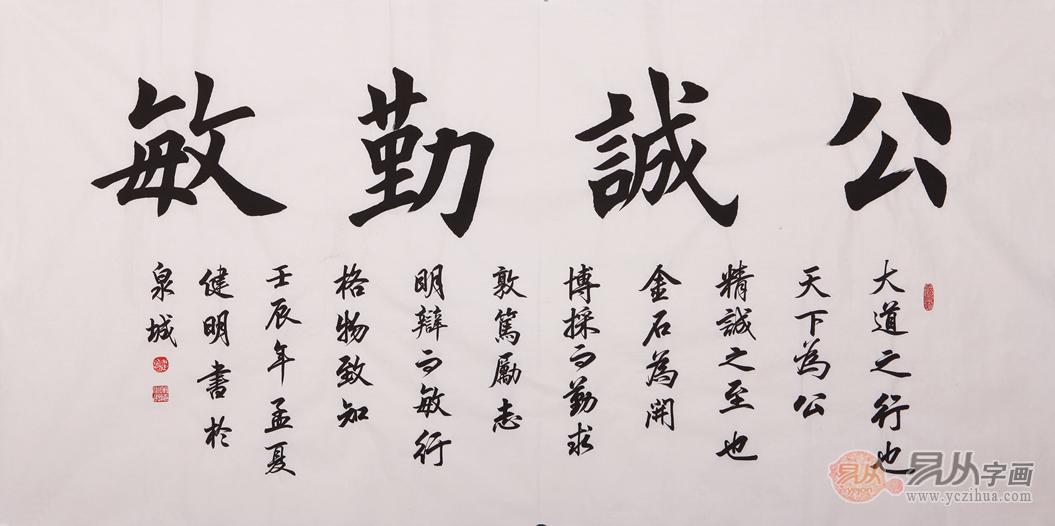 公誠勤敏
大道之行也
天下為公
精誠之至也
金石為開
博採而勤求
敦篤勵志
明辯而敏行
格物致知
壬辰年孟夏
健明書於
泉城
易从
易从字画
www.yczihua.com